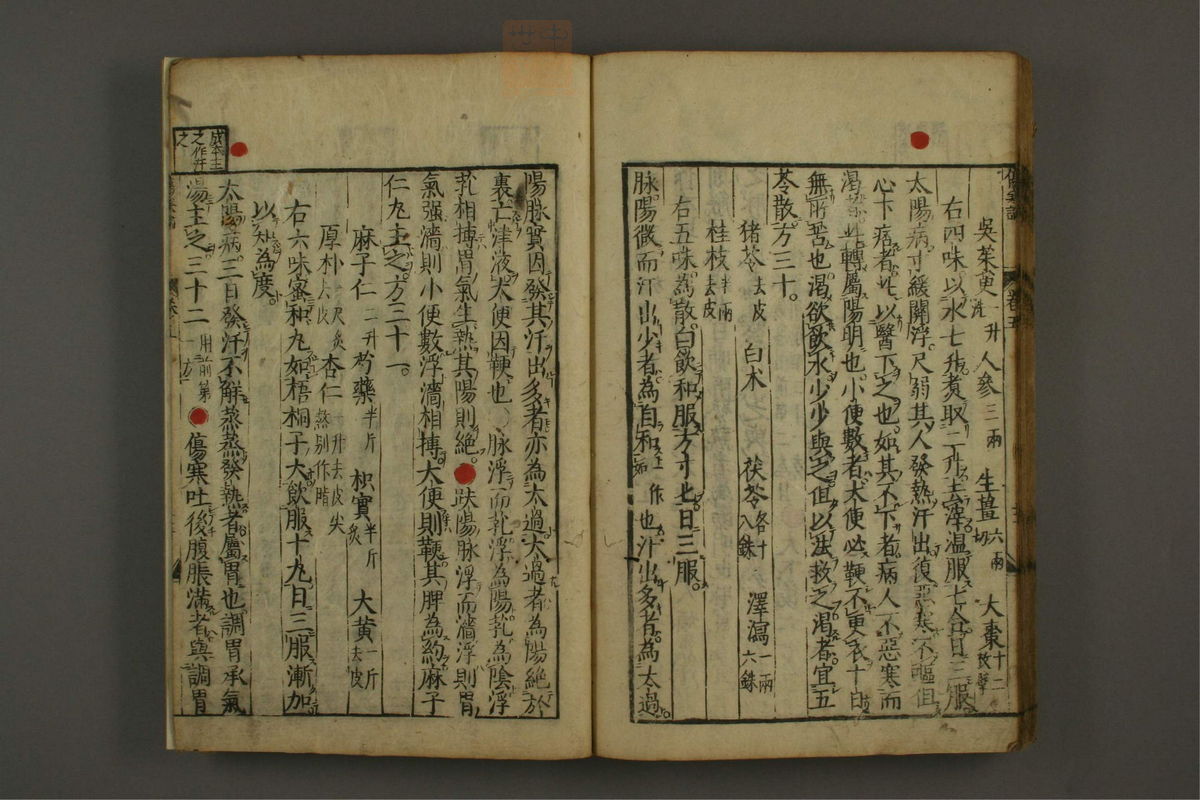 吳茱萸一升洗 人參三兩 生薑六兩切 大棗十二枚擘
右四味以水七升煮取二升去滓溫服七合日三服
太陽病寸緩關浮尺弱其人發熱汗出復惡寒不嘔但
心下痞者此以醫下之也如其不下者病人不惡寒而
渴者此轉屬陽明也小便數者大便必鞕不更衣十日
無所苦也渴欲飲水少少與之但以法救之渴者宜五
苓散方三十
猪苓去皮 白朮 茯苓各十八銖 澤瀉一兩六銖
桂枝半兩去皮
右五味為散白飲和服方寸匕日三服
脉陽微而汗出少者為自和 一作如 也汗出多者為太過
陽脉實因發其汗出多者亦為太過太過者為陽絕於
裏亡津液大便因鞕也 脉浮而芤浮為陽芤為陰浮
芤相搏胃氣生熱其陽則絕 趺陽脉浮而濇浮則胃
氣强濇則小便數浮濇相搏大便則鞕其脾為約麻子
仁丸主之方三十一
麻子仁二升 芍藥半斤 枳實半斤炙 大黃一斤去皮
厚朴一尺炙去皮 杏仁一升去皮尖熬別作脂
右六味蜜和丸如梧桐子大飲服十丸日三服漸加
以知為度
太陽病三日發汗不解蒸蒸發熱者屬胃也調胃承氣
湯主之三十二用前第一方 傷寒吐後腹脹滿者與調胃
卷五